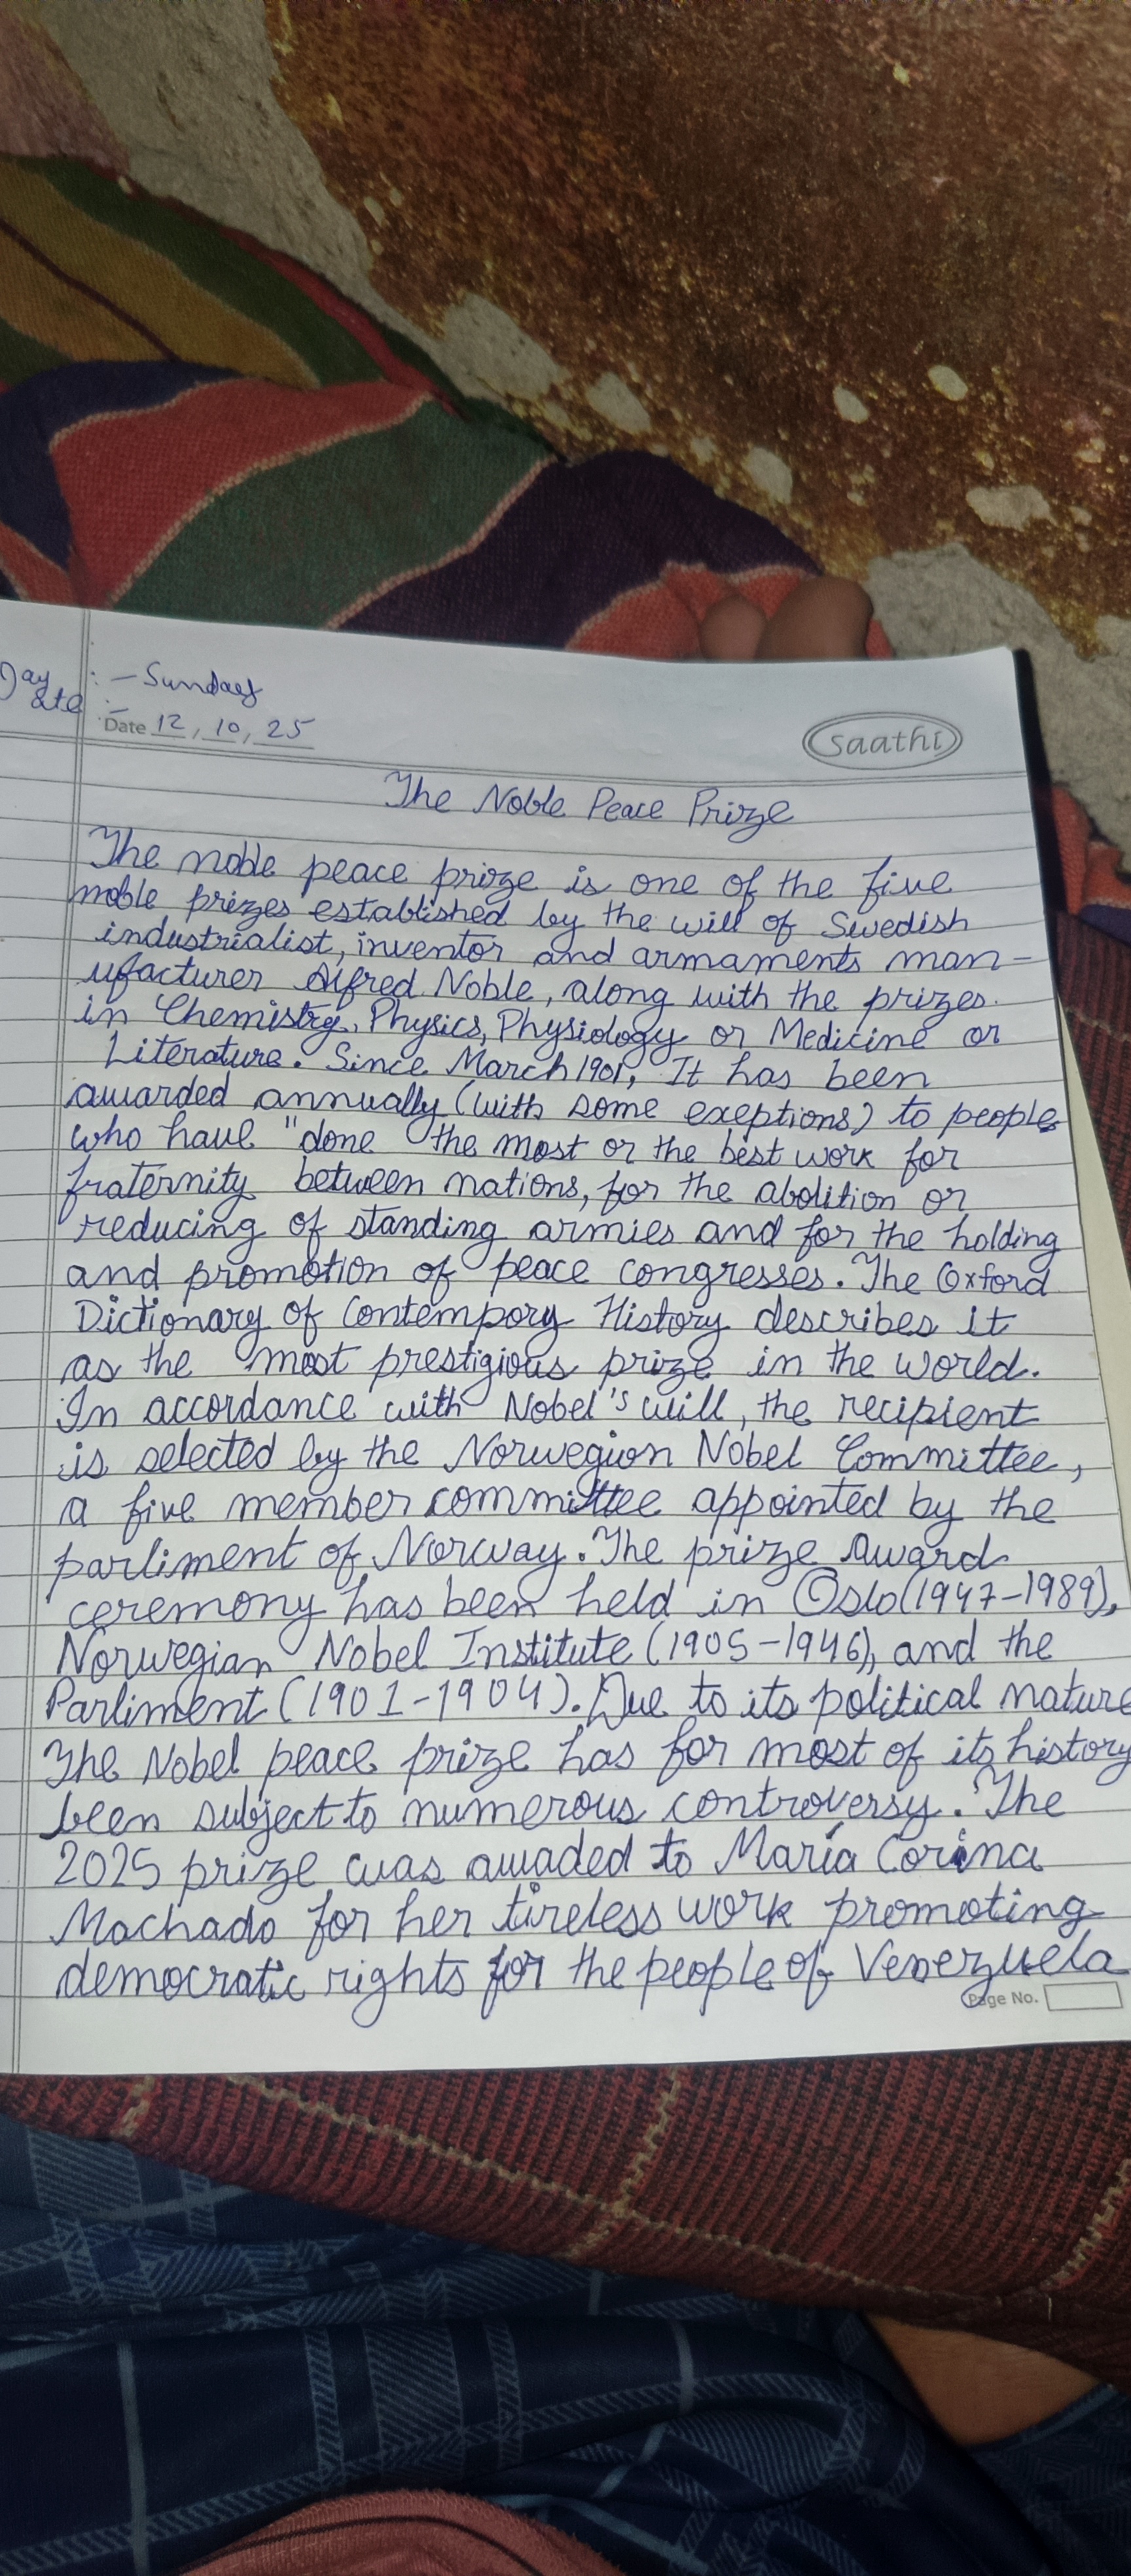 Day : - Sunday
ate : -
Date 12, 10, 25
Saathi
The Noble Peace Prize
The noble peace prize is one of the five
noble prizes established by the will of Swedish
industrialist, inventor and armaments man-
ufacturer Alfred Noble, along with the prizes.
in Chemistry, Physics, Physiology or Medicine or
Literature. Since March 1901, It has been
awarded annually (with some exeptions) to people
who have "done the most or the best work for
fraternity between nations, for the abolition or
reducing of standing armies and for the holding
and promotion of peace congresses. The Oxford
Dictionary of Contempory History describes it
as the most prestigious prize in the world.
In accordance with Nobel's will, the recipient
is selected by the Norwegion Nobel Committee,
a five member committee appointed by the
parliment of Norway. The prize Award
ceremony has been held in Oslo (1947-1989),
Norwegian Nobel Institute (1905-1946), and the
Parliment (1901-1904). Due to its political nature
The Nobel peace prize has for most of its history
been subject to numerous controversy. The
2025 prize was awaded to María Corina
Machado for her tireless work promoting
democratic rights for the people of Venezuela
Page No.